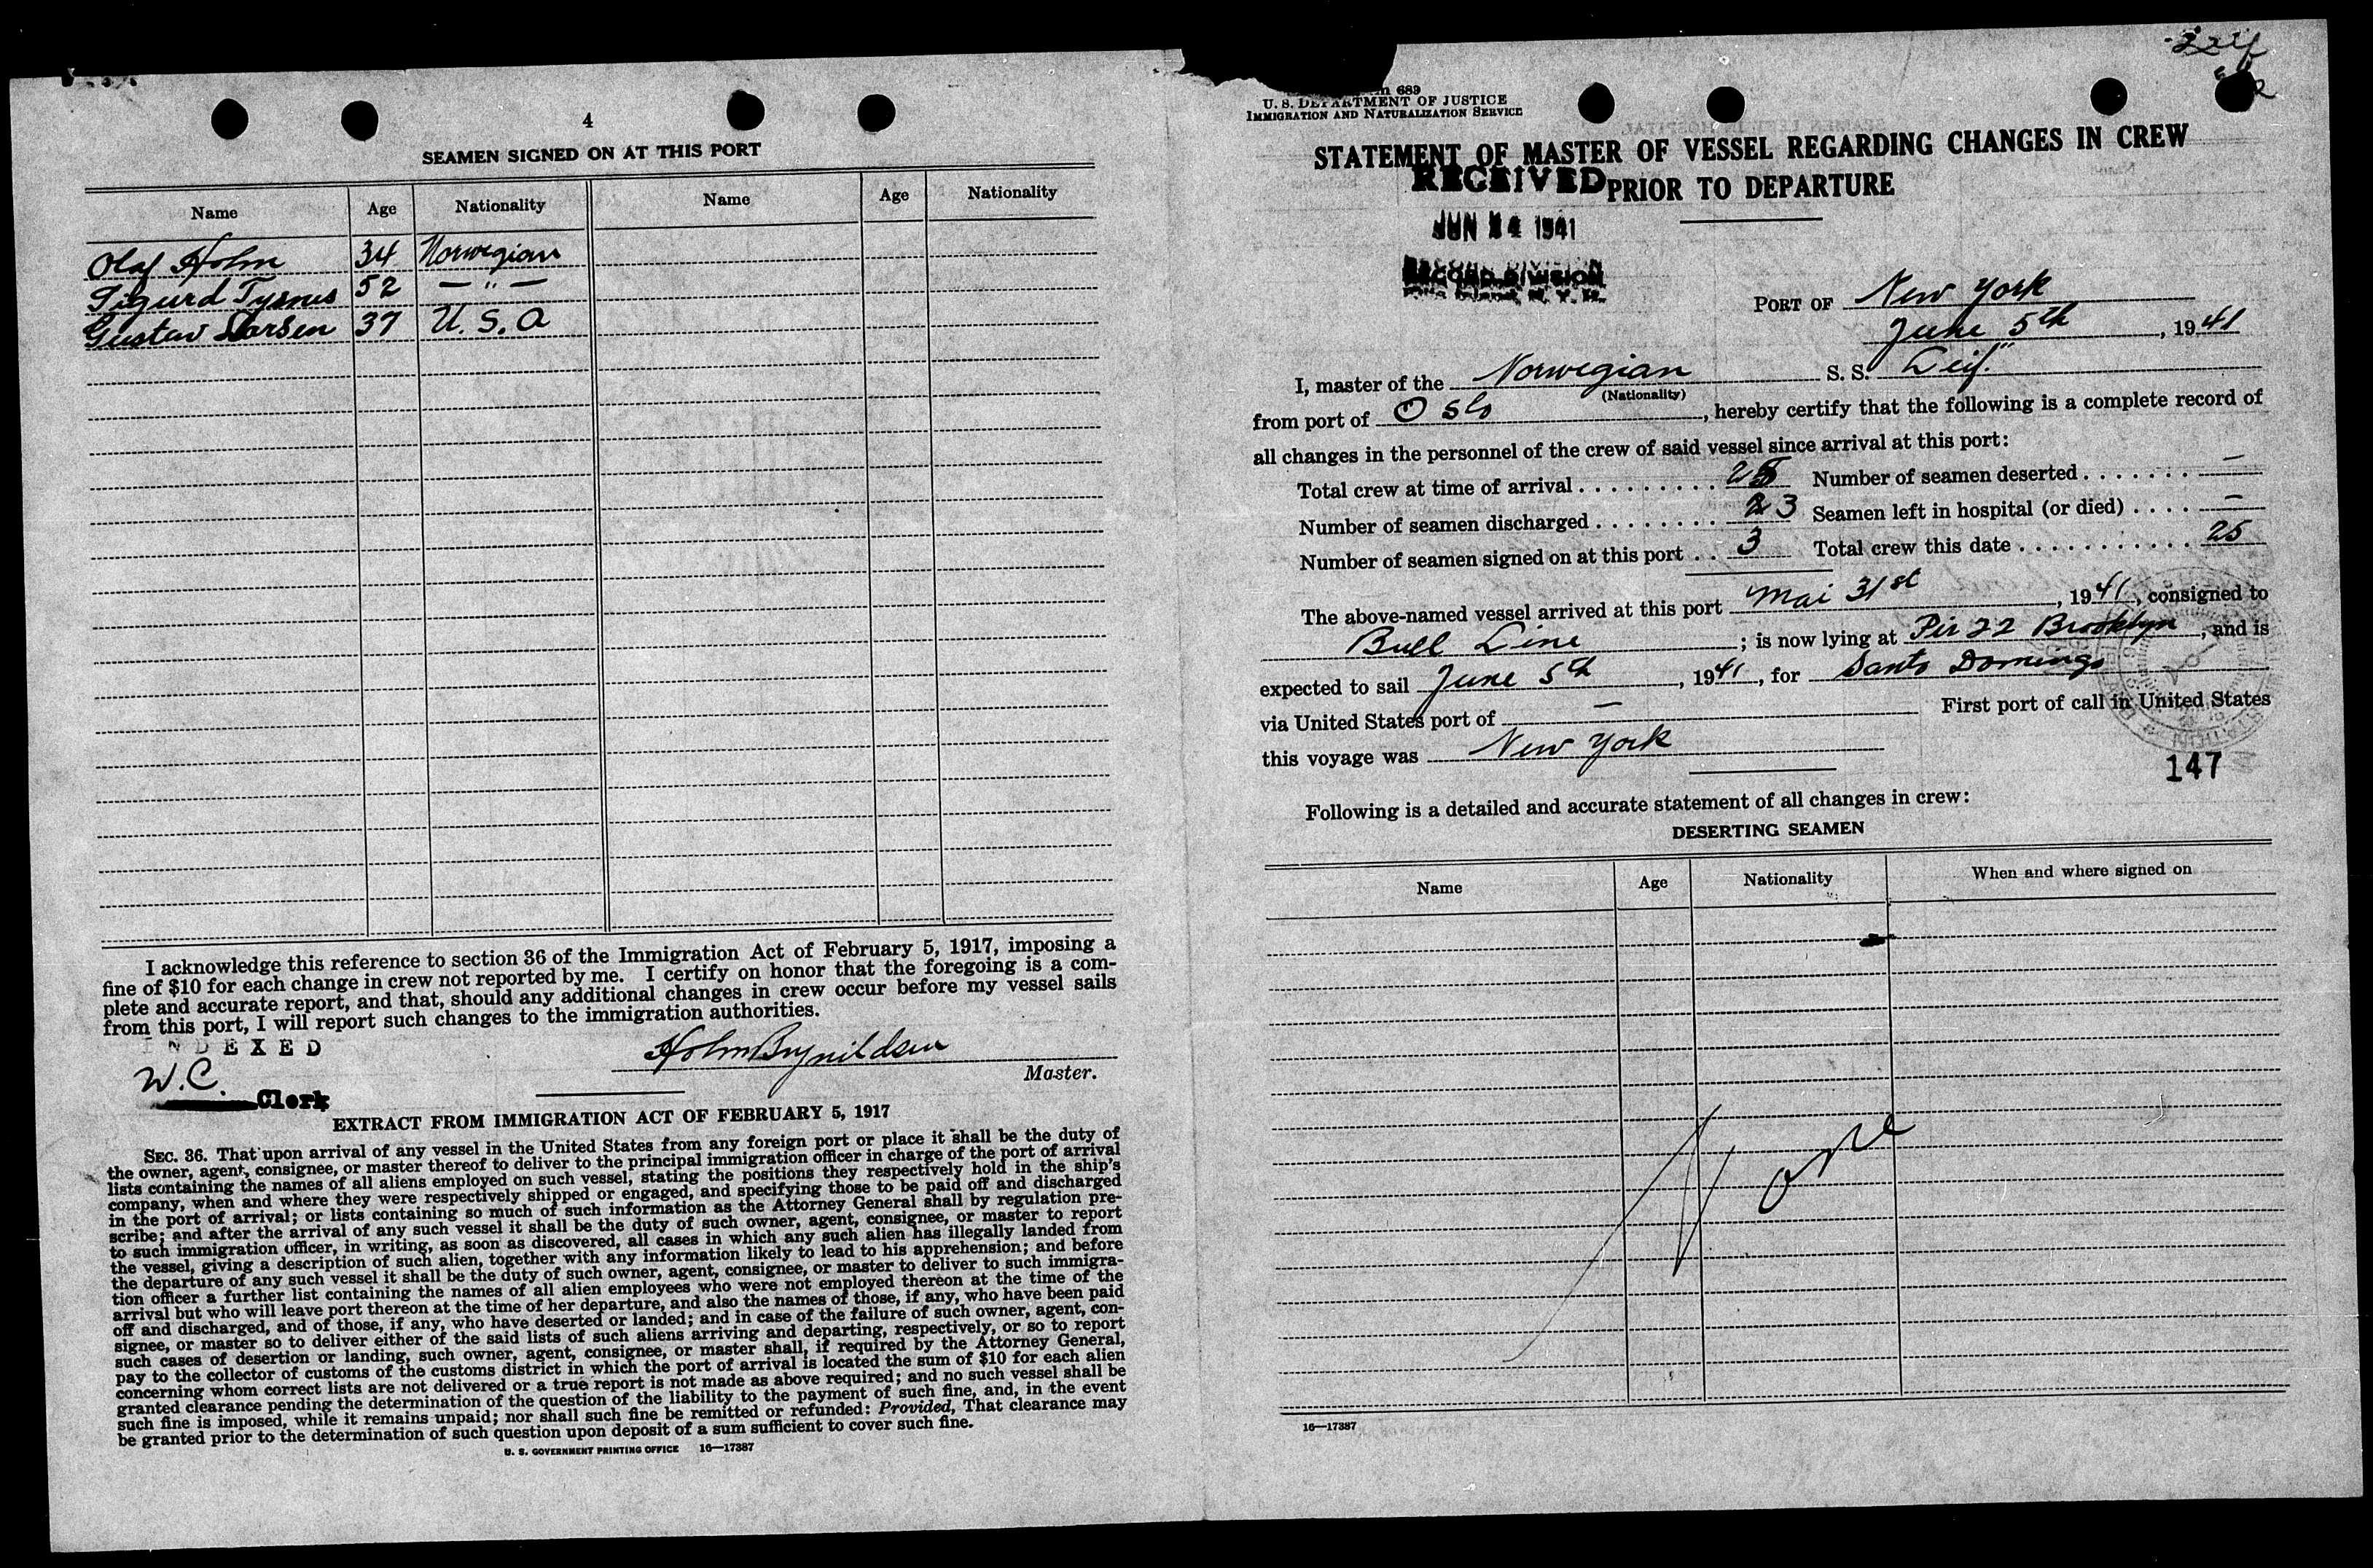 4
SEAMEN SIGNED ON AT THIS PORT
Name Age Nationality Name Age Nationality
Olaf Holm 34 Norwegian
Sigurd 52 — " —
Gustav Larsen 37 U. S. A
I acknowledge this reference to section 36 of the Immigration Act of February 5, 1917, imposing a
fine of $10 for each change in crew not reported by me. I certify on honor that the foregoing is a com-
plete and accurate report, and that, should any additional changes in crew occur before my vessel sails
from this port, I will report such changes to the immigration authorities.
INDEXED
Holm Brynildsen
Master.
W.C.
Clerk
EXTRACT FROM IMMIGRATION ACT OF FEBRUARY 5, 1917
SEC. 36. That upon arrival of any vessel in the United States from any foreign port or place it shall be the duty of
the owner, agent, consignee, or master thereof to deliver to the principal immigration officer in charge of the port of arrival
lists containing the names of all aliens employed on such vessel, stating the positions they respectively hold in the ship's
company, when and where they were respectively shipped or engaged, and specifying those to be paid off and discharged
in the port of arrival; or lists containing so much of such information as the Attorney General shall by regulation pre-
scribe; and after the arrival of any such vessel it shall be the duty of such owner, agent, consignee, or master to report
to such immigration officer, in writing, as soon as discovered, all cases in which any such alien has illegally landed from
the vessel, giving a description of such alien, together with any information likely to lead to his apprehension; and before
the departure of any such vessel it shall be the duty of such owner, agent, consignee, or master to deliver to such immigra-
tion officer a further list containing the names of all alien employees who were not employed thereon at the time of the
arrival but who will leave port thereon at the time of her departure, and also the names of those, if any, who have been paid
off and discharged, and of those, if any, who have deserted or landed; and in case of the failure of such owner, agent, con-
signee, or master so to deliver either of the said lists of such aliens arriving and departing, respectively, or so to report
such cases of desertion or landing, such owner, agent, consignee, or master shall, if required by the Attorney General,
pay to the collector of customs of the customs district in which the port of arrival is located the sum of $10 for each alien
concerning whom correct lists are not delivered or a true report is not made as above required; and no such vessel shall be
granted clearance pending the determination of the question of the liability to the payment of such fine, and, in the event
such fine is imposed, while it remains unpaid; nor shall such fine be remitted or refunded: Provided, That clearance may
be granted prior to the determination of such question upon deposit of a sum sufficient to cover such fine.
U. S. GOVERNMENT PRINTING OFFICE 16—17387
689
U. S. DEPARTMENT OF JUSTICE
IMMIGRATION AND NATURALIZATION SERVICE
STATEMENT OF MASTER OF VESSEL REGARDING CHANGES IN CREW
PRIOR TO DEPARTURE
RECEIVED
JUN 14 1941
RECORD DIVISION
PORT OF New York
June 5th, 1941
I, master of the Norwegian S. S. Leif"
(Nationality)
from port of Oslo, hereby certify that the following is a complete record of
all changes in the personnel of the crew of said vessel since arrival at this port:
Total crew at time of arrival 25 Number of seamen deserted —
Number of seamen discharged 3 Seamen left in hospital (or died) —
Number of seamen signed on at this port 3 Total crew this date 25
The above-named vessel arrived at this port Mai 31st, 1941, consigned to
Bull Line; is now lying at Pir 22 Brooklyn, and is
expected to sail June 5th, 1941, for Santo Domingo
via United States port of — First port of call in United States
this voyage was New York
147
Following is a detailed and accurate statement of all changes in crew:
DESERTING SEAMEN
Name Age Nationality When and where signed on
None
16—17387